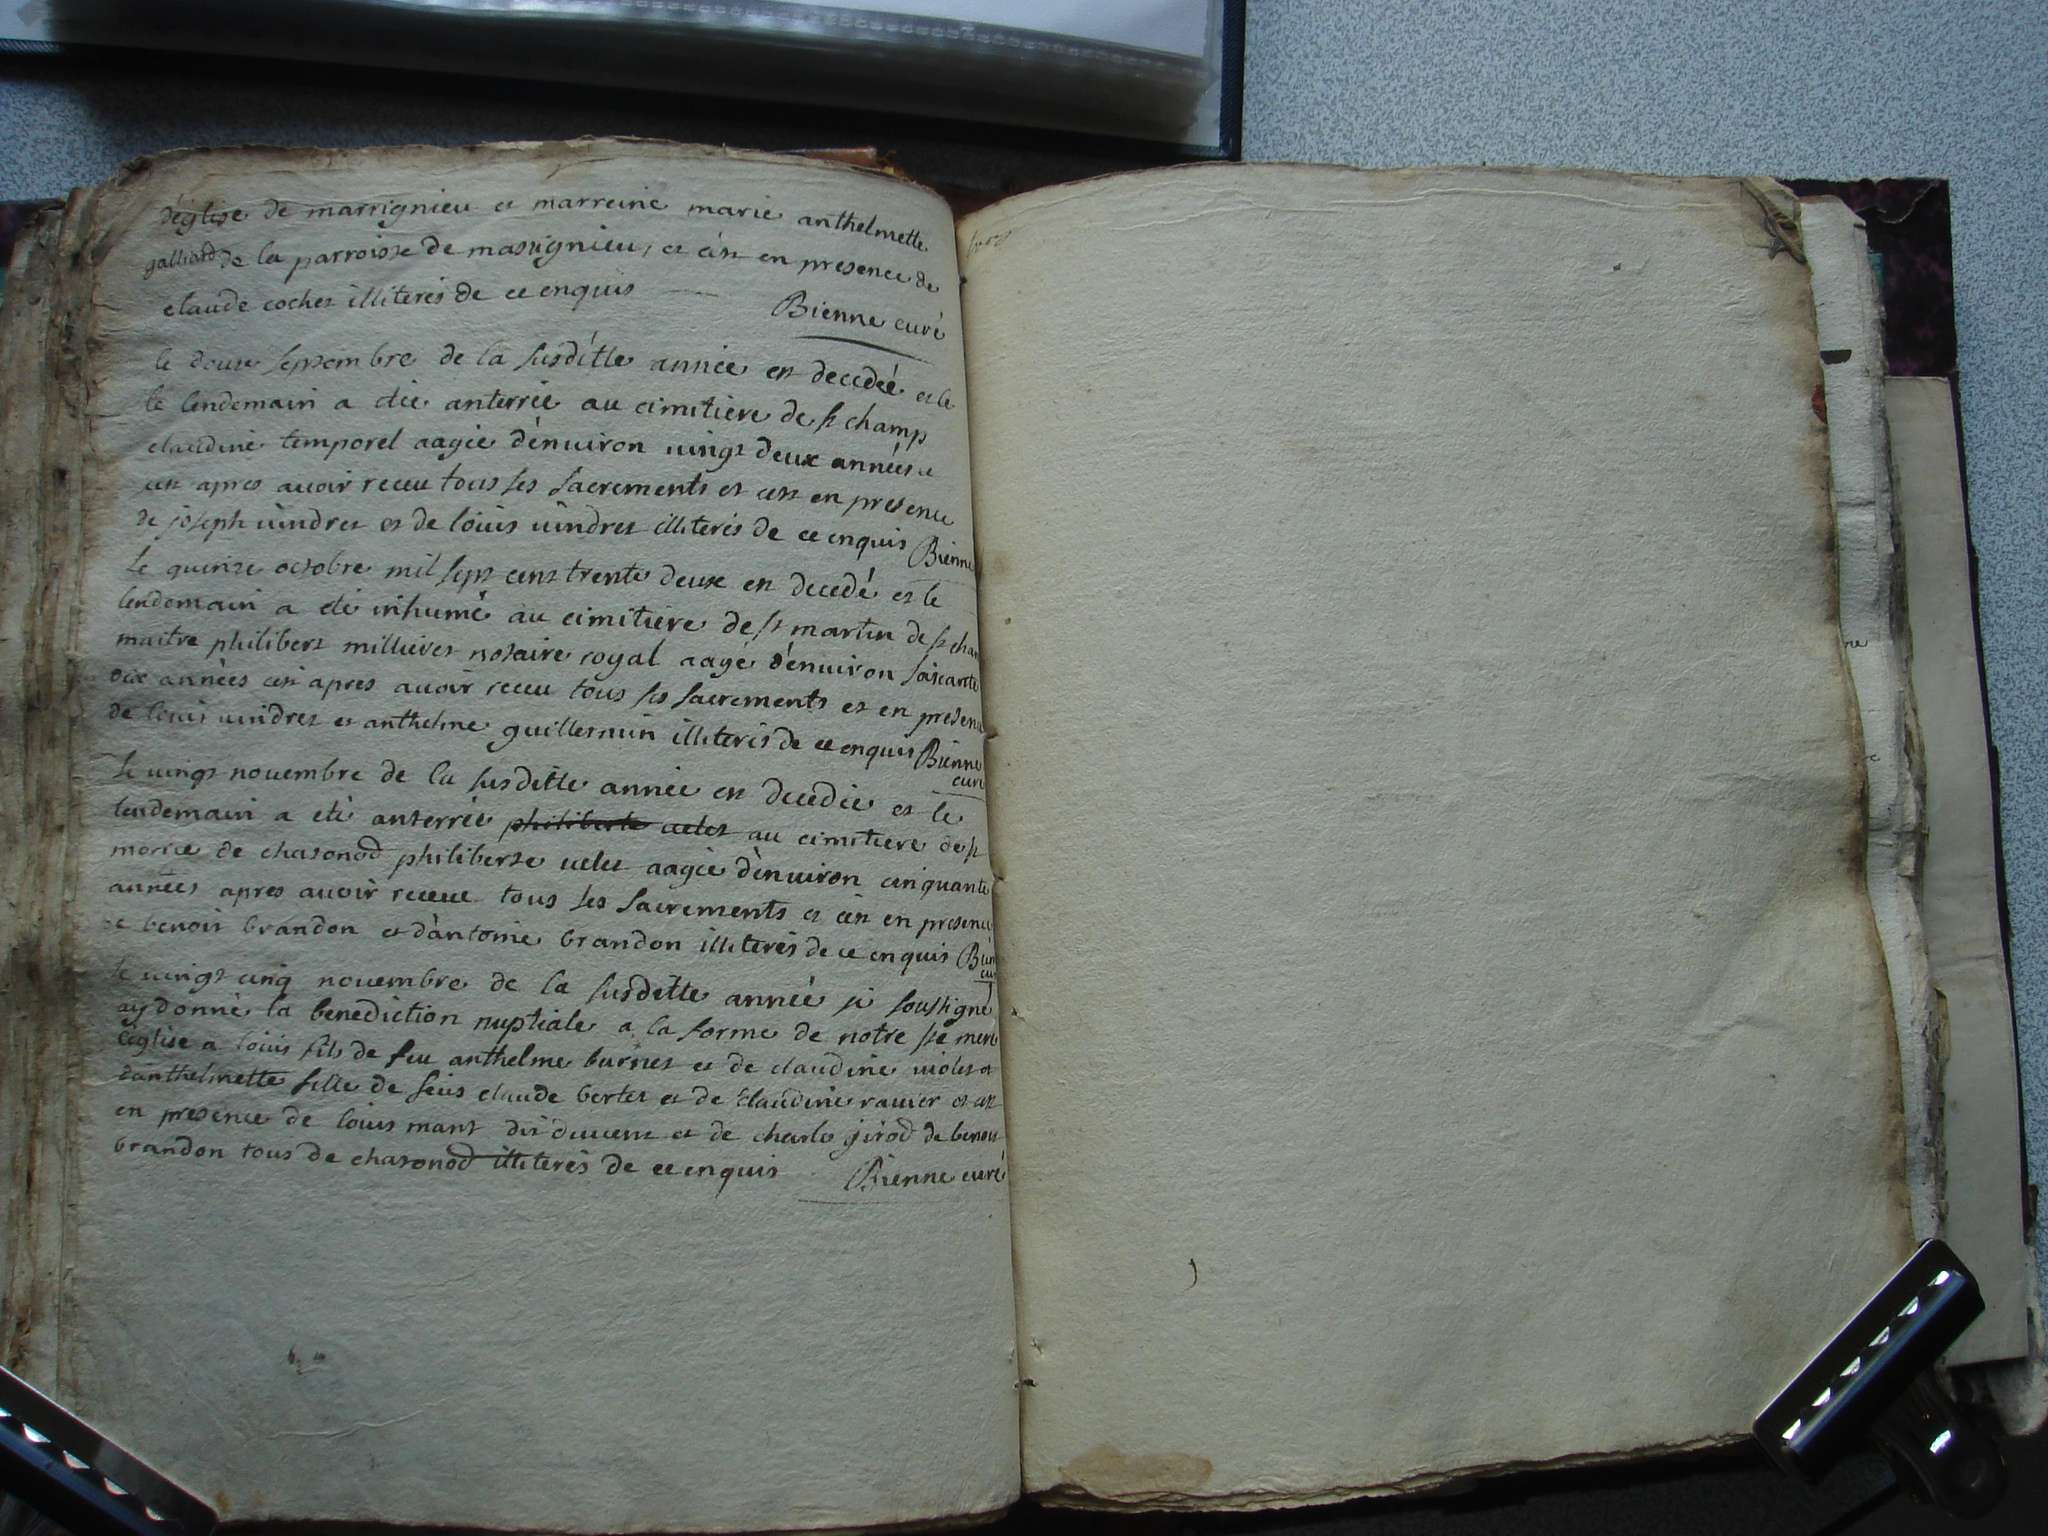 d'église de marrignieu et marreine marie anthelmette
galliard de la parroisse de massignieu, et c'est en presence de
claude cochet illiterés de ce enquis
Bienne curé
le douze septembre de la susditte année est decedeé et le
lendemain a eté anterrée au cimitiere de st champ
claudine temporel aagée d'enuiron uingt deux années
apres auoir receu tous ses sacrements et cest en presence
de joseph uindret et de loüis uindret illiterés de ce enquis Bienne
le quinze octobre mil sept cent trente deux est decedé et le
lendemain a eté inhumé au cimitiere de st martin de st cham
maitre philibert millieret notaire royal aagé d'enuiron soixante
dix années cest apres auoir receu tous ses sacrements et en presence
de louis uindret et anthelme guillermin illiterés de ce enquis Bienne
curé
le uingt nouembre de la susditte année est decedée et le
lendemain a eté anterrée philiberte uelet au cimitiere de st
morice de chasonod philiberte uelet aagée d'enuiron cinquante
années apres auoir receue tous ses sacrements et c'est en presence
de benoit brandon et d'antoine brandon illiterés de ce enquis Bien
cur
le uingt cinq nouembre de la susditte année je soussigné
ay donné la benediction nuptiale a la forme de notre ste mere
eglise a loüis fils de feu anthelme burnet et de claudine uiolet et
d'anthelmette fille de feus claude bertet et de claudine rauier et cest
en presence de loüis mant dit duuent et de charle girod de benoit
brandon tous de chasonod illiterés de ce enquis
Bienne curé